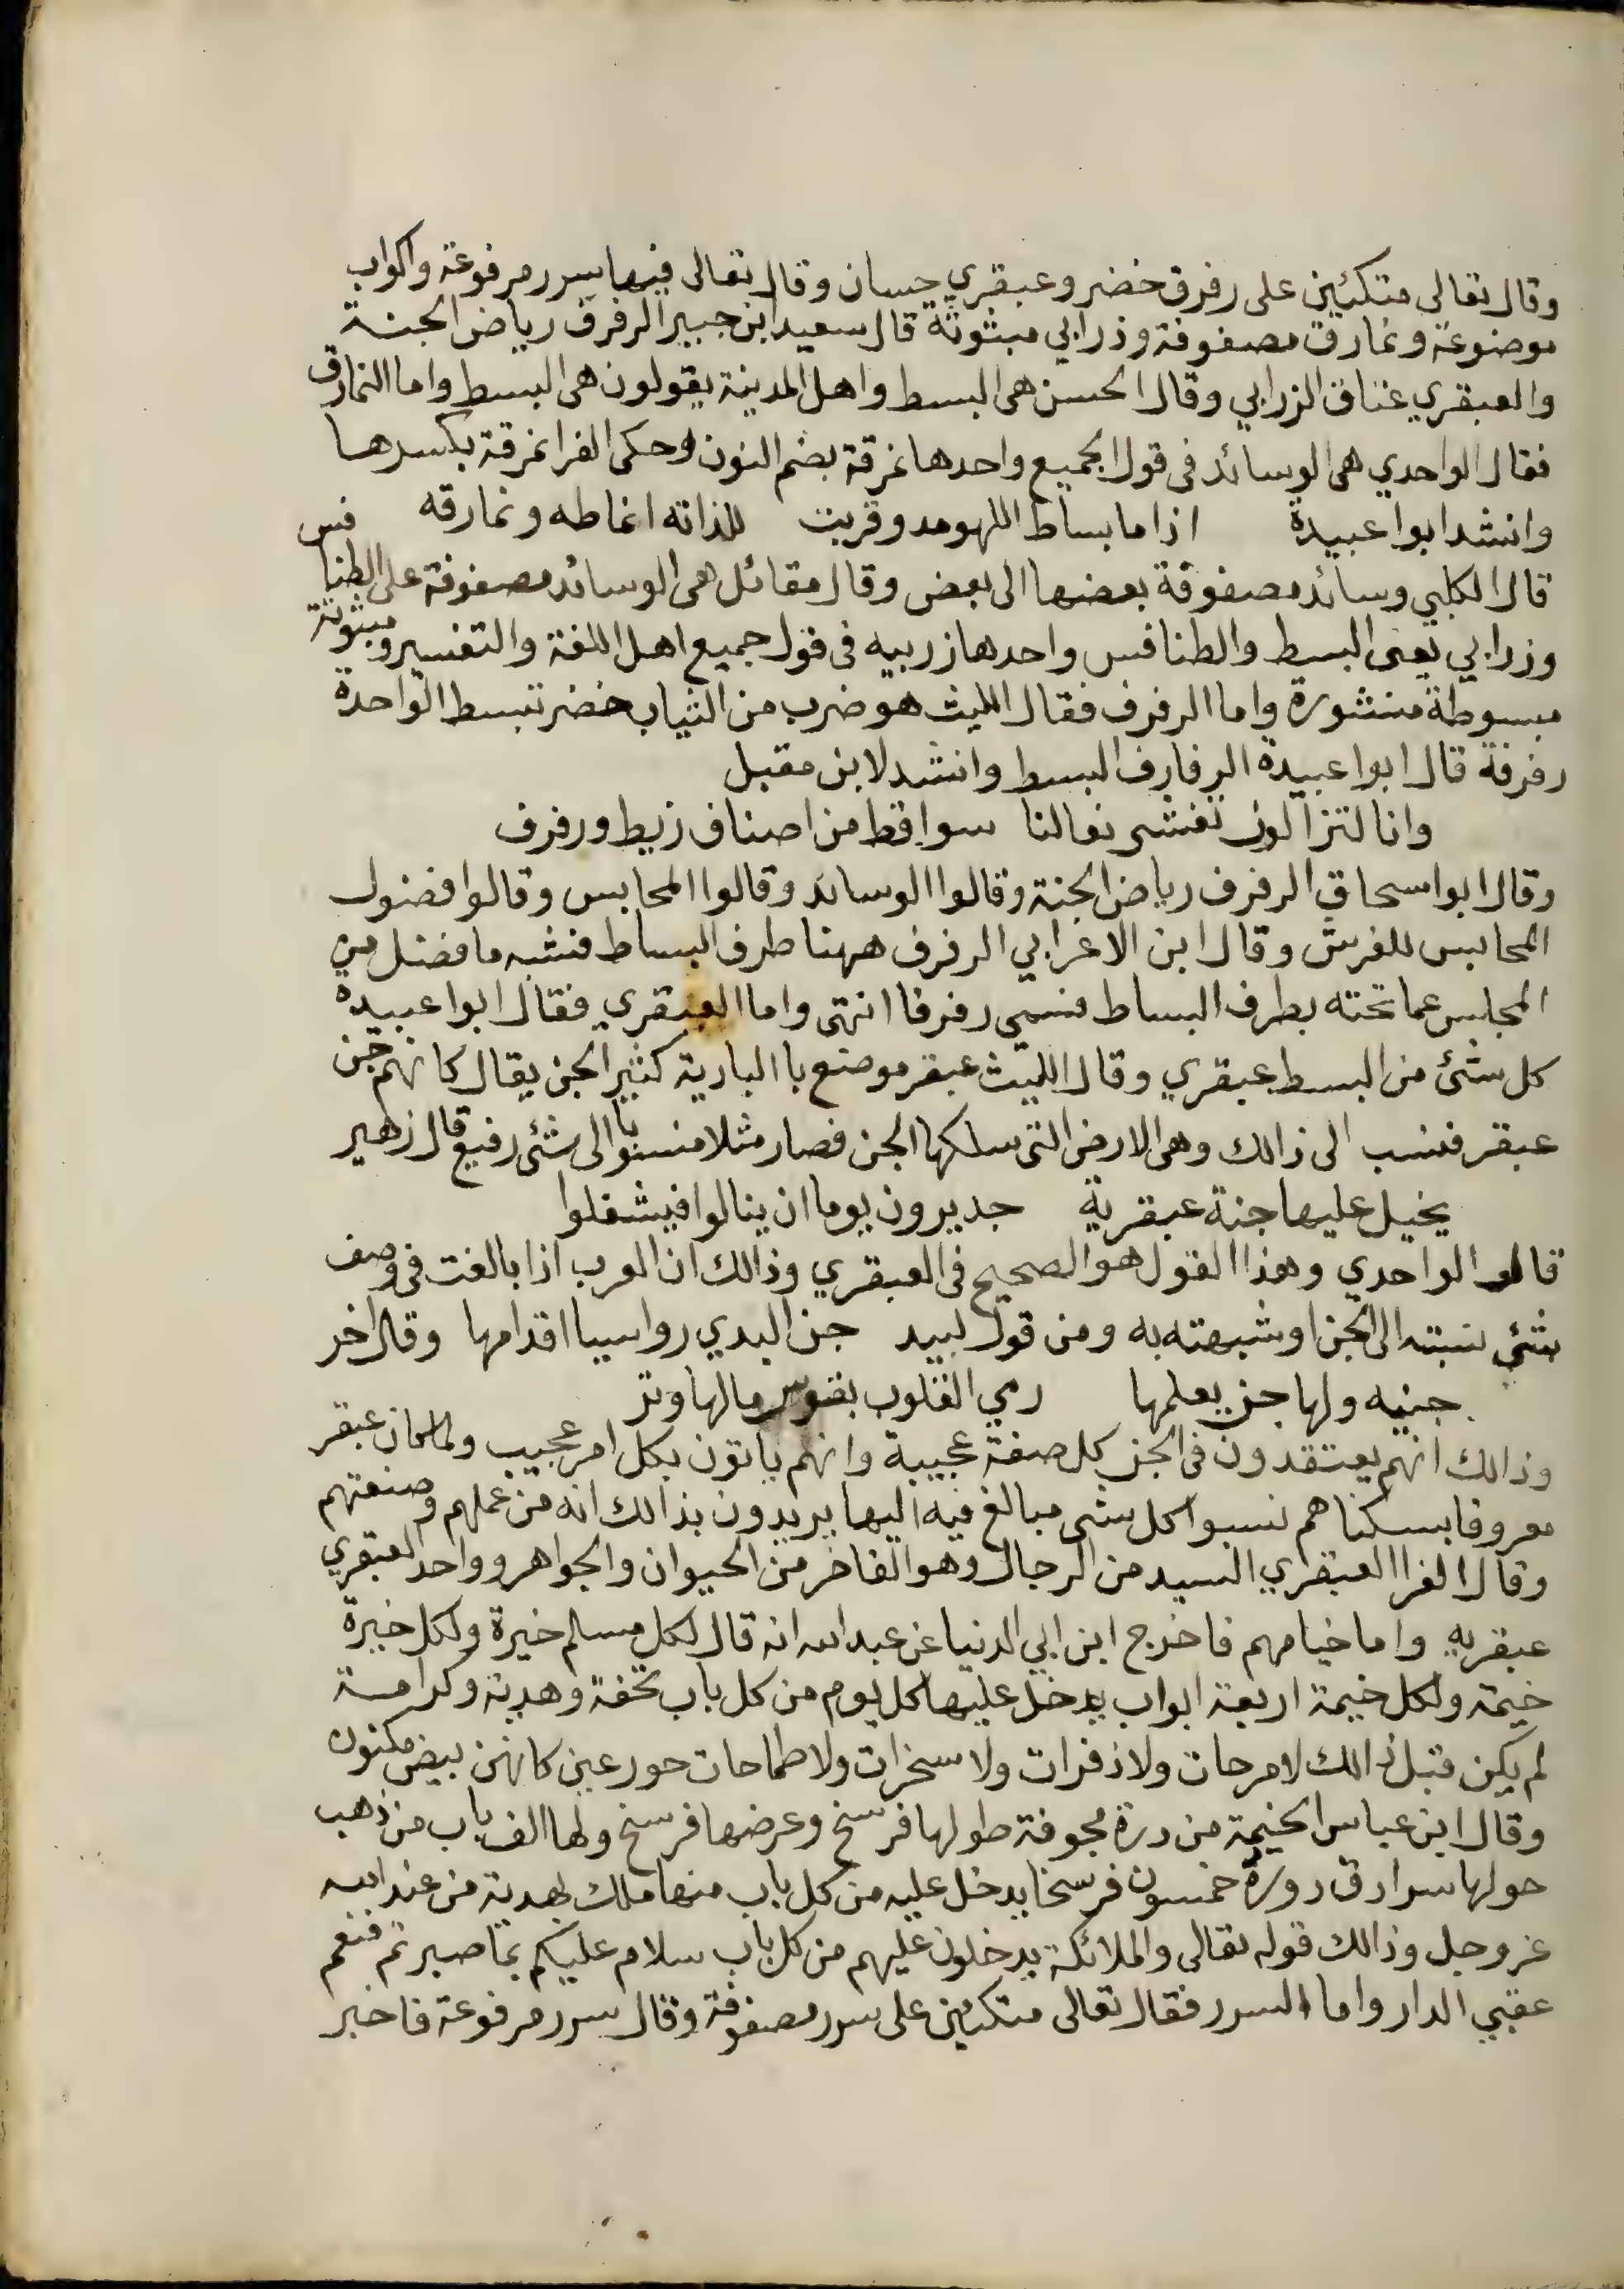 وقال تعالى متكئين على رفرف خضر وعبقري حسان وقال تعالى فيها سرر مرفوعة واكواب
موضوعة ونمارق مصفوفة وزرابي مبثوثة قال سعيد ابن جبير الرفرف رياض الجنة
والعبقري عتاق الزرابي وقال الحسن هى البسط واهل المدينة يقولون هى البسط واما النمارق
فقال الواحدي هى الوسائد فى قول الجميع واحدها نمرقة بضم النون وحكى الفرا نمرقة بكسرها
وانشد ابوا عبيدة اذا ما بساط اللهو مد وقربت للذاته انماطه ونمارقه
قال الكلبي وسائد مصفوفة بعضها الى بعض وقال مقاتل هى الوسائد مصفوفة على الطنافس
وزرابي يعنى البسط والطنافس واحدها زربيه فى قول جميع اهل اللغة والتفسير ومبثوثة
مبسوطة منشورة واما الرفرف فقال الليث هو ضرب من الثياب خضر تبسط الواحدة
رفرفة قال ابوا عبيدة الرفارف البسط وانشد لابن مقبل
وانا لنزالون تغشى نعالنا سواقط من اصناف زيط ورفرف
وقال ابوا سحاق الرفرف رياض الجنة وقالوا الوسائد وقالوا المحابس وقالوا فضول
المحابس للفرش وقال ابن الاعرابي الرفرف ههنا طرف البساط فشبه ما فضل من
المجلس عما تحته بطرف البساط فسمى رفرفا انتهى واما العبقري فقال ابوا عبيدة
كل شئ من البسط عبقري وقال الليث عبقر موضع با البادية كثير الجن يقال كانهم جن
عبقر فنسب الى ذالك وهى الارض التى سلكها الجن فصار مثلا منسوبا الى شئ رفيع قال زهير
يخيل عليها جنة عبقرية جديرون يوما ان ينالوا فيشغلوا
قال الواحدي وهذا القول هو الصحيح فى العبقري وذالك ان العرب اذا بالغت فى وصف
شئي نسبته الى الجن او شبهته به ومن قول لبيد جن البدي رواسيا اقدامها وقال اخر
جنيه ولها جن يعلمها رمي القلوب بقوس ما لها وتر
وذالك انهم يعتقدون فى الجن كل صفة عجيبة وانهم ياتون بكل امر عجيب ولما كان عبقر
معروفا بسكناهم نسبوا كل شى مبالغ فيه اليها يريدون بذالك انه من عملهم وصنعتهم
وقال الفرا العبقري السيد من الرجال وهو الفاخر من الحيوان والجواهر وواحد العبقري
عبقريه واما خيامهم فاخرج ابن ابي الدنيا عن عبد الله انه قال لكل مسلم خيرة ولكل خيرة
خيمة ولكل خيمة اربعة ابواب يدخل عليها كل يوم من كل باب تحفة وهدية وكرامة
لم يكن قبل ذالك لا مرحات ولا ذفرات ولا سخرات ولا طماحات حور عين كانهن بيض مكنون
وقال ابن عباس الخيمة من درة مجوفة طولها فرسخ وعرضها فرسخ ولها الف باب من ذهب
حولها سرادق دورة خمسون فرسخا يدخل عليه من كل باب منها ملك بهدية من عند الله
عز وجل وذالك قوله تعالى والملائكة يدخلون عليهم من كل باب سلام عليكم بما صبرتم فنعم
عقبي الدار واما السرر فقال تعالى متكئين على سرر مصفوفة وقال سرر مرفوعة فاخبر